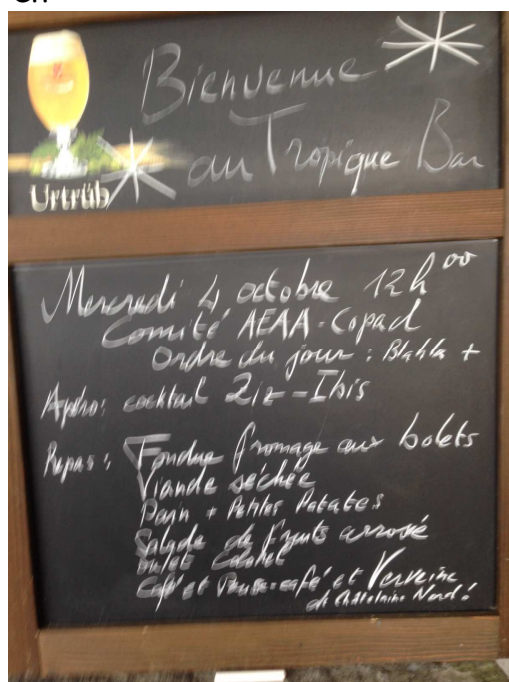 Bienvenue
au Tropique Bar
Urtrüb
Mercredi 4 octobre 12h00
Comité AEAA-Copad
Ordre du jour : Blabla +
Apéro: cocktail -Ibis
Repas : Fondue fromage aux bolets
Viande séchée
Pain + Petites Patates
Salade de Fruits arrosé
Café et Pousse-café et Verveine
de